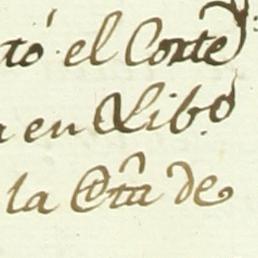 tó el Corte
en Libo
la Cta de